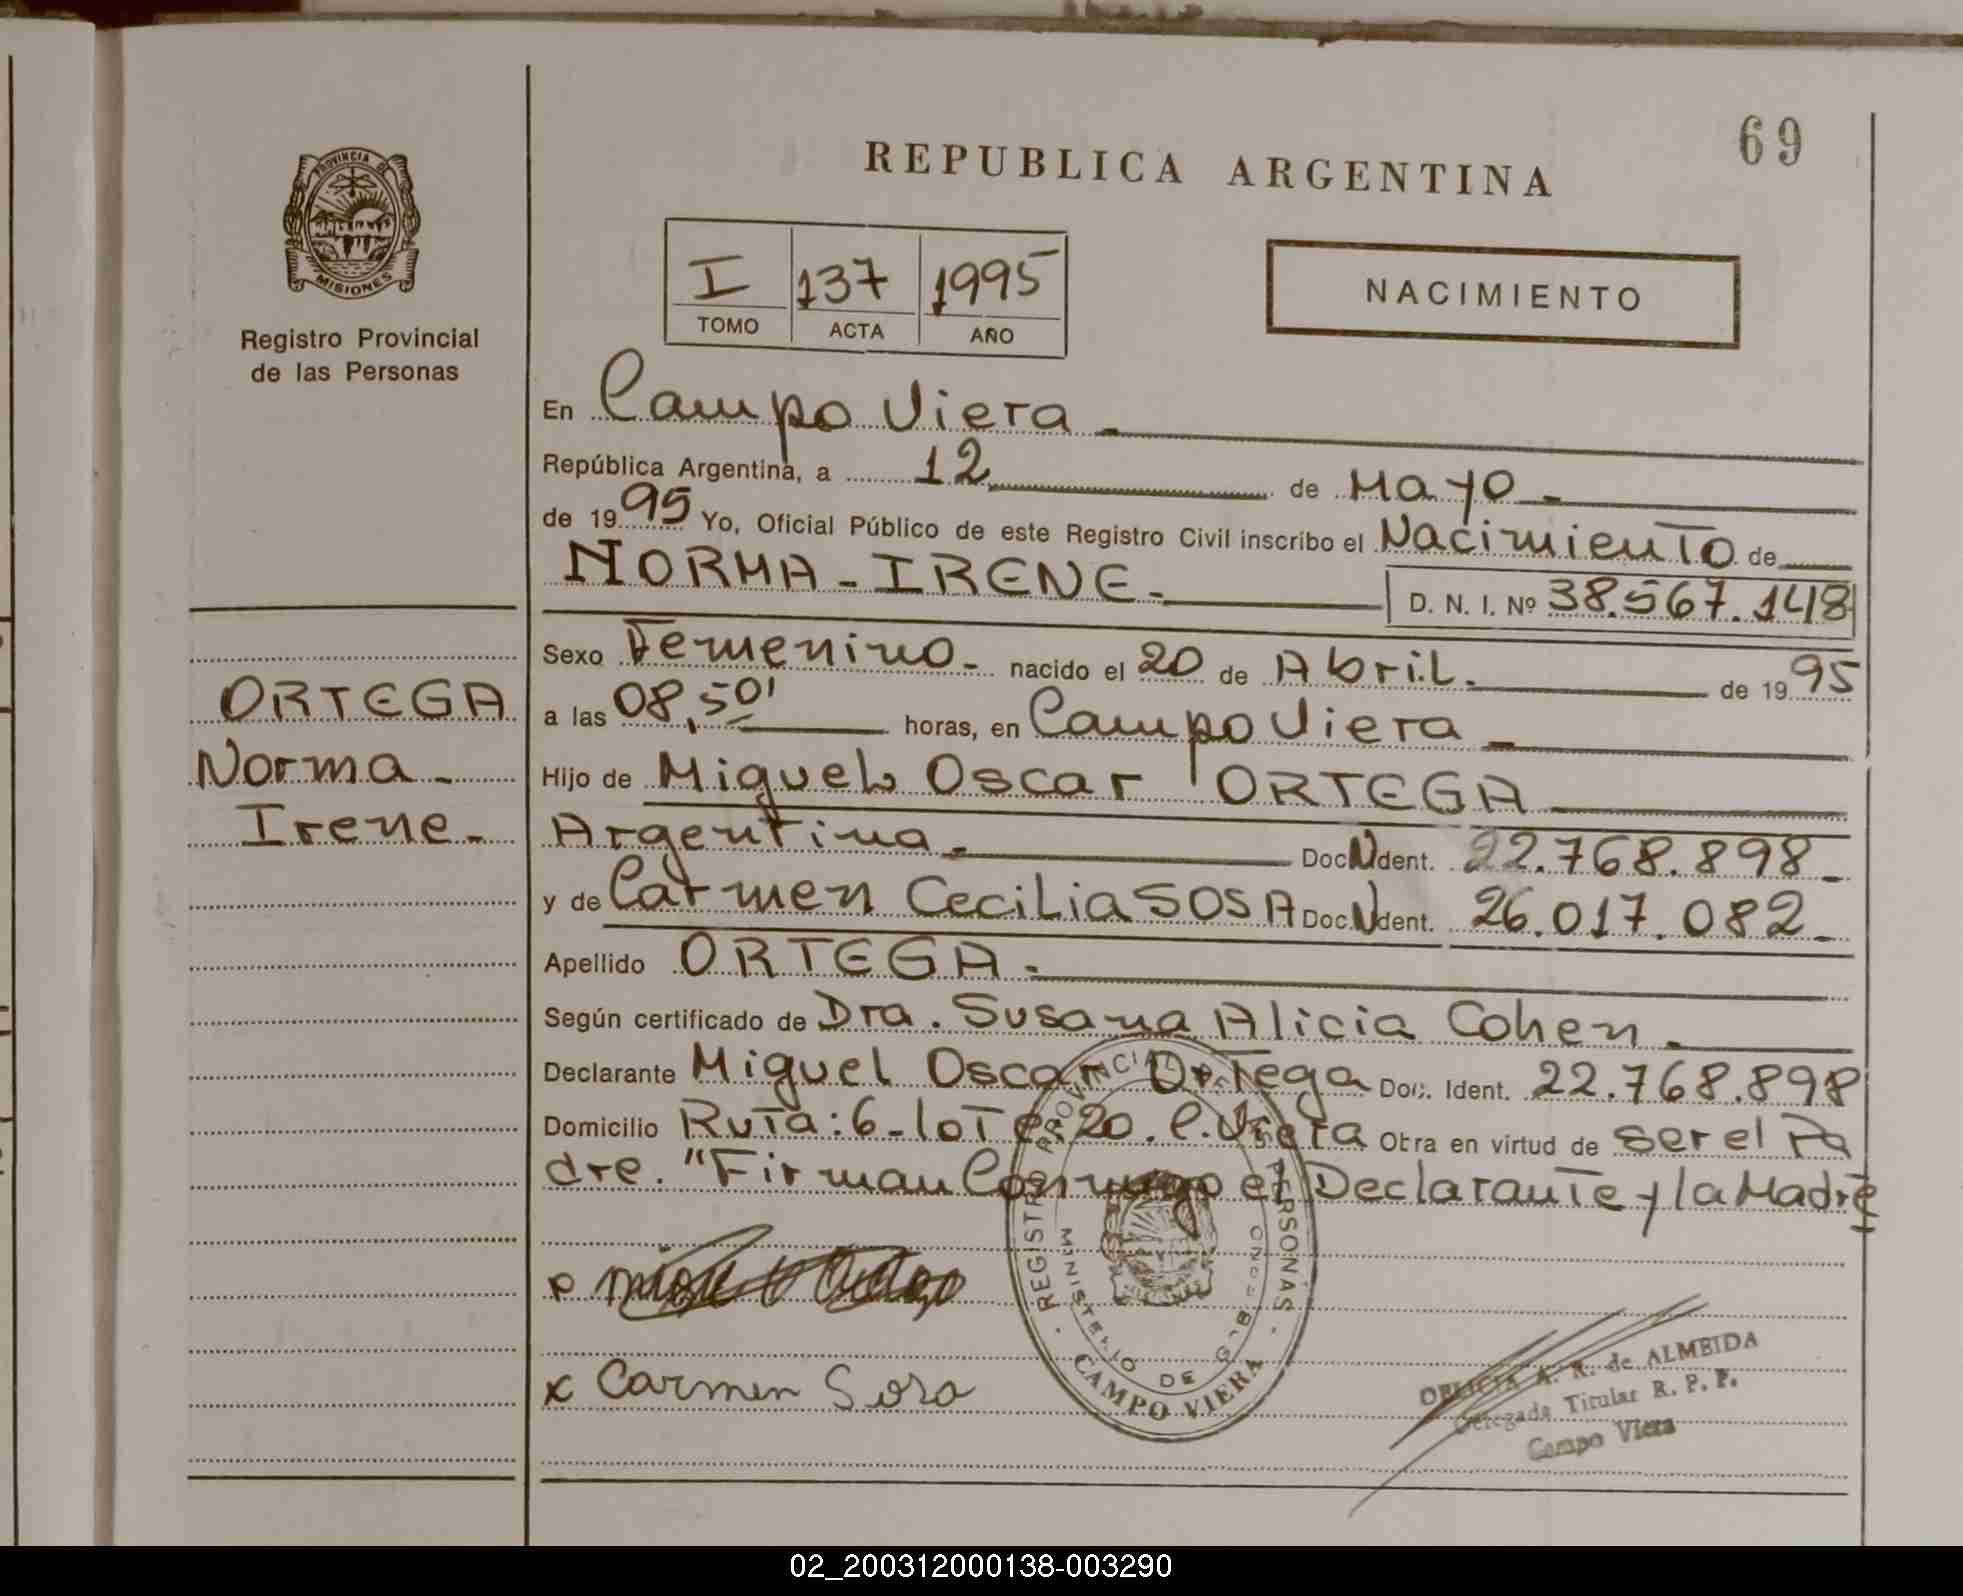 69
REPUBLICA ARGENTINA
PROVINCIA DE
MISIONES
Registro Provincial
de las Personas
I 137 1995
TOMO ACTA AÑO
NACIMIENTO
En Campo Viera -
República Argentina, a 12 de Mayo -
de 1995 Yo, Oficial Público de este Registro Civil inscribo el Nacimiento de
NORMA - IRENE - D. N. I. Nº 38.567.148
Sexo Femenino - nacido el 20 de Abril. de 1995
a las 08,50' horas, en Campo Viera -
Hijo de Miguel Oscar ORTEGA
Argentina - Doc. Ident. 22.768.898 -
y de Carmen Cecilia SOSA Doc. Ident. 26.017.082 -
Apellido ORTEGA -
Según certificado de Dra. Susana Alicia Cohen -
Declarante Miguel Oscar Ortega Doc. Ident. 22.768.898
Domicilio Ruta: 6 - lote: 20. C. Viera Obra en virtud de ser el Pa
dre. "Firman Conmigo el Declarante y la Madre
ORTEGA
Norma -
Irene -
x Carmen Sosa
REGISTRO PROVINCIAL DE LAS PERSONAS
MINISTERIO DE GOBIERNO
CAMPO VIERA
A. R. de ALMEIDA
Delegada Titular R. P. P.
Campo Viera
02_200312000138-003290